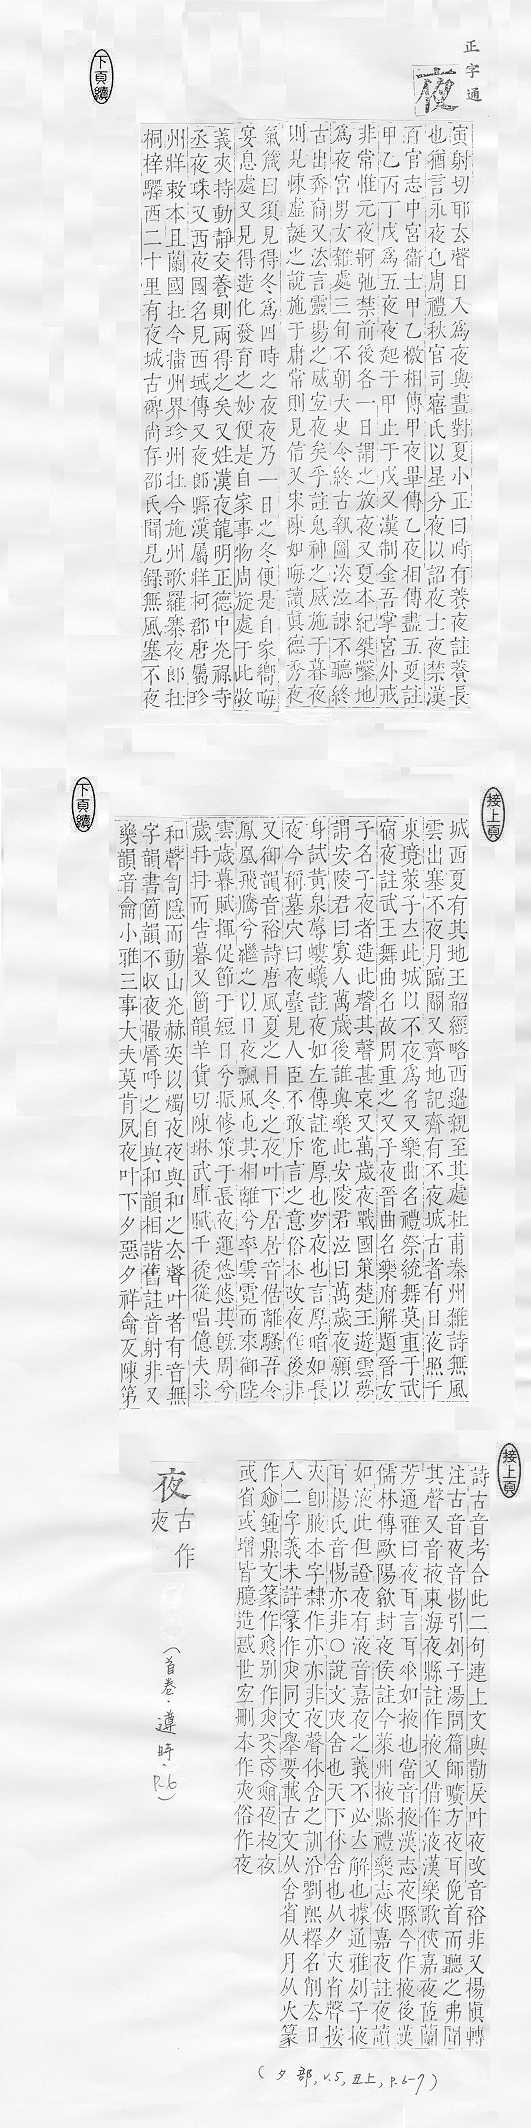 正字通
夜
下頁續
寅射切耶去聲日入為夜與晝對夏小正曰時有養夜註養長
也猶言永夜也周禮秋官司寤氏以星分夜以詔夜士夜禁漢
百官志中宮衞士甲乙徼相傳甲夜畢傳乙夜相傳盡五更註
甲乙丙丁戊為五夜夜起于甲止于戊又漢制金吾掌宮外戒
非常惟元夜弛禁前後各一日謂之放夜又夏本紀桀鑿地
為夜宮男女雜處三旬不朝大史令終古執圖法泣諫不聽終
古出奔商又法言靈場之威宜夜矣乎註鬼神之威施于暮夜
則見悚虛誕之說施于庸常則見信又宋陳如晦讀眞德秀夜
氣箴曰須見得冬為四時之夜夜乃一日之冬便是自家嚮晦
宴息處又見得造化發育之妙便是自家事物周旋處于此敬
義夾持動靜交養則兩得之矣又姓漢夜龍明正德中光祿寺
丞夜珠又西夜國名見西域傳又夜郎縣漢屬牂柯郡唐屬珍
州牂敎本且蘭國在今播州界珍州在今施州歌羅寨夜郎在
桐梓驛西二十里有夜城古碑尚存邵氏聞見錄無風塞不夜
接上頁
下頁續
城西夏有其地王韶經略西邊親至其處杜甫秦州雜詩無風
雲出塞不夜月臨關又齊地記齊有不夜城古者有日夜照于
東境萊子立此城以不夜為名又樂曲名禮祭統舞莫重于武
宿夜註武王舞曲名故周重之又子夜晉曲名樂府解題晉女
子名子夜者造此聲其聲甚哀又萬歲夜戰國策楚王遊雲夢
謂安陵君曰寡人萬歲後誰與樂此安陵君泣曰萬歲夜願以
身試黃泉蓐螻蟻註夜如左傳註窀厚也穸夜也言厚暗如長
夜今稱墓穴曰夜臺見人臣不敢斥言之意俗本改夜作後非
又御韻音裕詩唐風夏之日冬之夜叶下居居音倨離騷吾令
鳳凰飛騰兮繼之以日夜飄風屯其相離兮率雲霓而來御陸
雲歲暮賦揮促節于短日兮振修策于長夜運悠悠其旣周兮
歲冉冉而告暮又箇韻羊貨切陳琳武庫賦千徒從唱億夫求
和聲訇隱而動山光赫奕以燭夜夜與和之去聲叶者有音無
字韻書箇韻不收夜撮脣呼之自與和韻相諧舊註音射非又
藥韻音龠小雅三事大夫莫肯夙夜叶下夕惡夕祥龠反陳第
接上頁
詩古音考合此二句連上文與勩戾叶夜改音裕非又楊愼轉
注古音夜音惕引列子湯問篇師曠方夜耳俛首而聽之弗聞
其聲又音掖東海夜縣註作掖又借作液漢樂歌俠嘉夜茝蘭
芳通雅曰夜耳言耳垂如掖也當音掖漢志夜縣今作掖後漢
儒林傳歐陽歙封夜侯註今萊州掖縣禮樂志俠嘉夜註夜讀
如液此但證夜有液音嘉夜之義不必去解也據通雅列子掖
耳楊氏音惕亦非○說文夾舍也天下休舍也从夕亦省聲按
夾卽腋本字隸作亦亦非夜聲休舍之訓沿劉熙釋名削去日
入二字義未詳篆作夾同文舉要載古文从舍省从月从火篆
或省或增皆臆造惑世宜刪本作夾俗作夜
夜古作
(首卷.遵時.P.6)
(夕部,v.5,丑上,p.6-7)